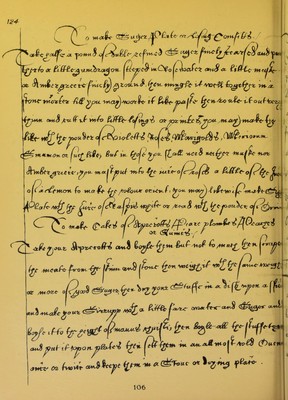 124
To make Suger Plate or lising Comfitts
Take halfe a pound of duble refined Suger finely searsed and put
thereto a little gumdragon steeped in Rosewater and a little muske
& Ambergreece finely ground then mingle it well together in a
stone morter till you may worke it like paste then roule it out very
thinn and cutt it into little losings or points, you may make by
like with the powder of Violetts Roses Marigolds
Sinamon or such like, but in these you shall need nether muske nor
Ambergreece; you must put into the of roses a little of the Juice
of a Lemon to make the colour orient. you may likewise make Suger
Plate with the Juice of Raspis white or read with the powder of
To make Cakes of Apricotts Peare plumbes
or Quinces
Take your Apricocks and boyle them but not to much then scrape
the meate from the skinn and stone then weigh it with the same waight
or more of good Suger then dry your Stuffe in a dish upon a
and make your Sirrupp with a little faire water and Suger and
boyle it to the hight of manus Christi, then boyle all the stuffe together
and put it upon plates then sett them in an allmost cold Oven
once or twice and keepe them in a Stove or drying place.
106